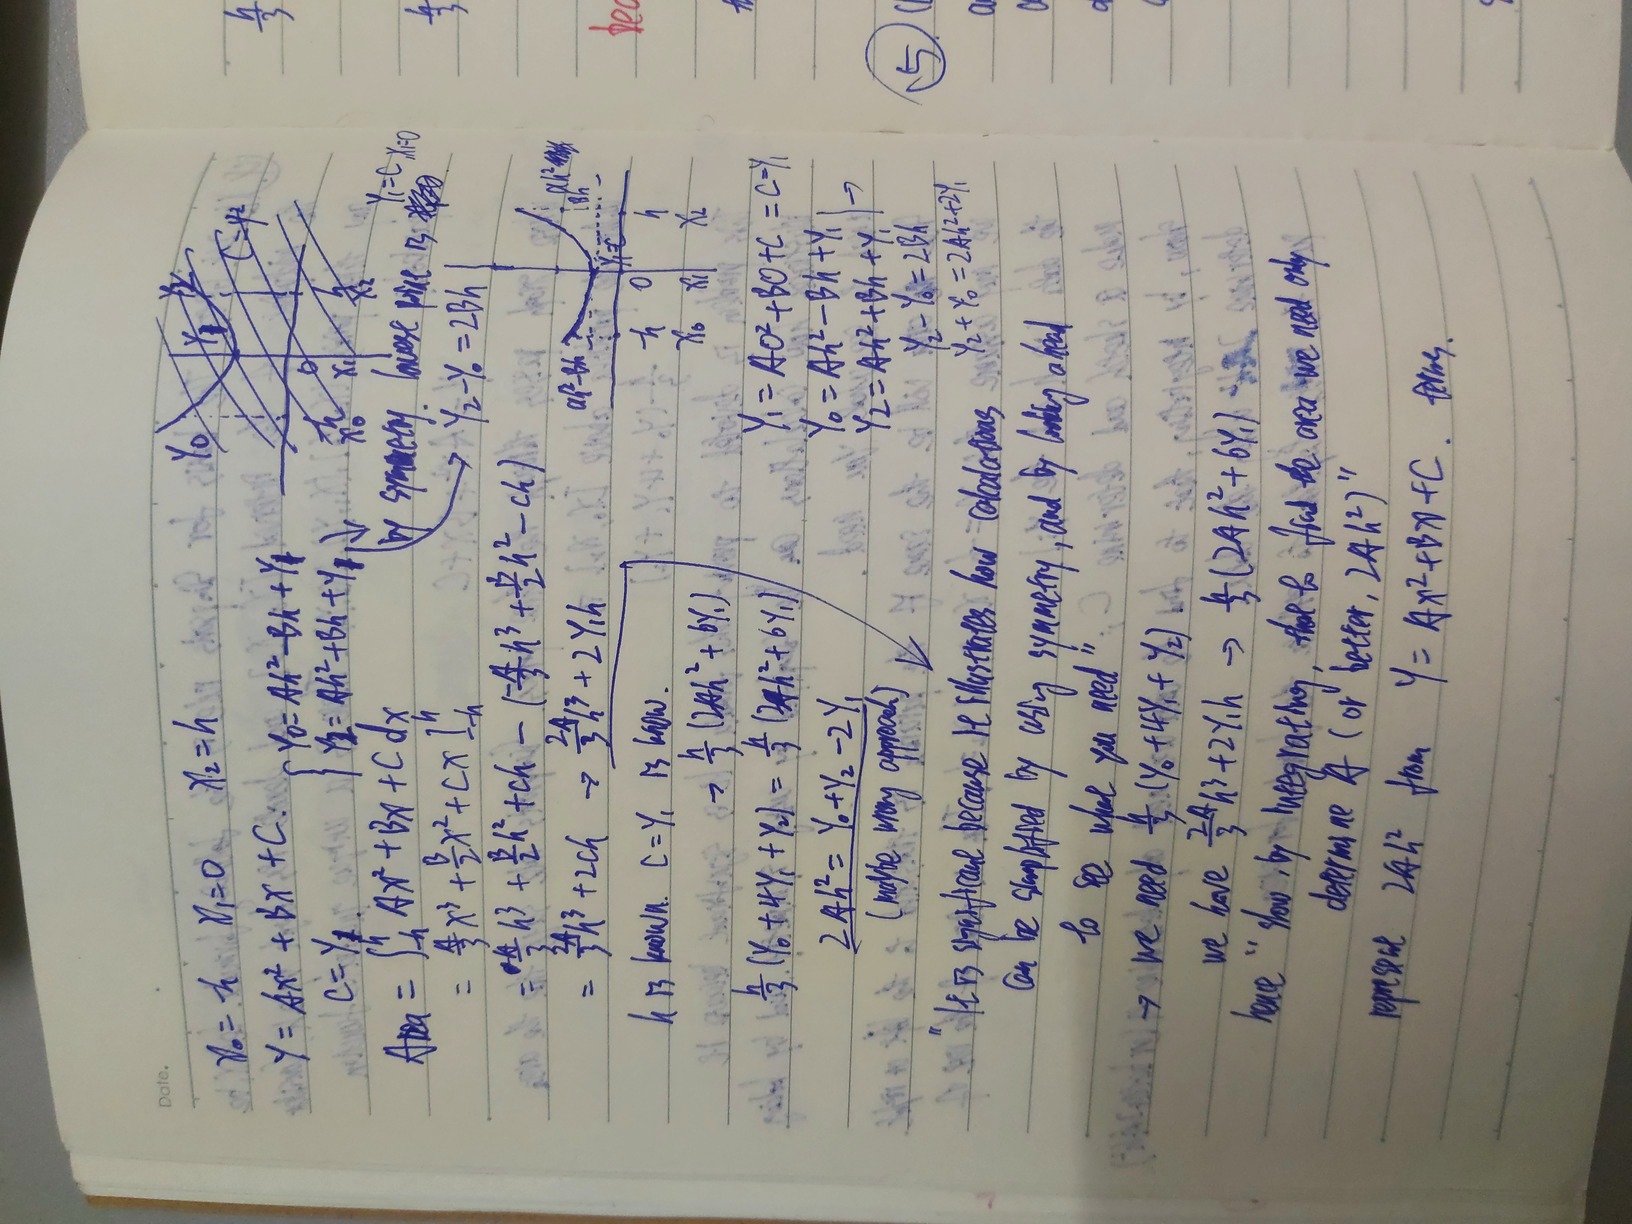 Date.
x₀ = -h  x₁ = 0  x₂ = h
Y = Ax² + Bx + C.
C = Y₁.
Y₀ = Ah² - Bh + Y₁
Y₂ = Ah² + Bh + Y₁
Y₀ Y₁ Y₂
-h 0 h
x₀ x₁ x₂
by symmetry. lowest point is
Y₁ = C, x₁ = 0
Area = ∫₋ₕʰ Ax² + Bx + C dx
= A/3 x³ + B/2 x² + Cx ]₋ₕʰ
→ Y₂ - Y₀ = 2Bh
= A/3 h³ + B/2 h² + Ch - (-A/3 h³ + B/2 h² - Ch)
= 2A/3 h³ + 2Ch → 2A/3 h³ + 2Y₁h
ah² - Bh
ah²
Bh
Y₁ = C
-h 0 h
x₀ x₁ x₂
h is known. C = Y₁ is know.
→ h/3 (2Ah² + 6Y₁)
h/3 (Y₀ + 4Y₁ + Y₂) = h/3 (2Ah² + 6Y₁)
2Ah² = Y₀ + Y₂ - 2Y₁
(maybe wrong approach)
Y₁ = A0² + B0 + C = C = Y₁
Y₀ = Ah² - Bh + Y₁
Y₂ = Ah² + Bh + Y₁ →
Y₂ - Y₀ = 2Bh
Y₂ + Y₀ = 2Ah² + 2Y₁
"It is significant because it illustrates how calculations
can be simplified by using symmetry, and by looking ahead
to see what you need"
→ we need h/3 (Y₀ + 4Y₁ + Y₂)
we have 2A/3 h³ + 2Y₁h → h/3 (2Ah² + 6Y₁)
hence "show, by integrating, that to find the area we need only
determine A (or better, 2Ah²)"
represent 2Ah² from Y = Ax² + Bx + C. terms.
h/3
h/3
5